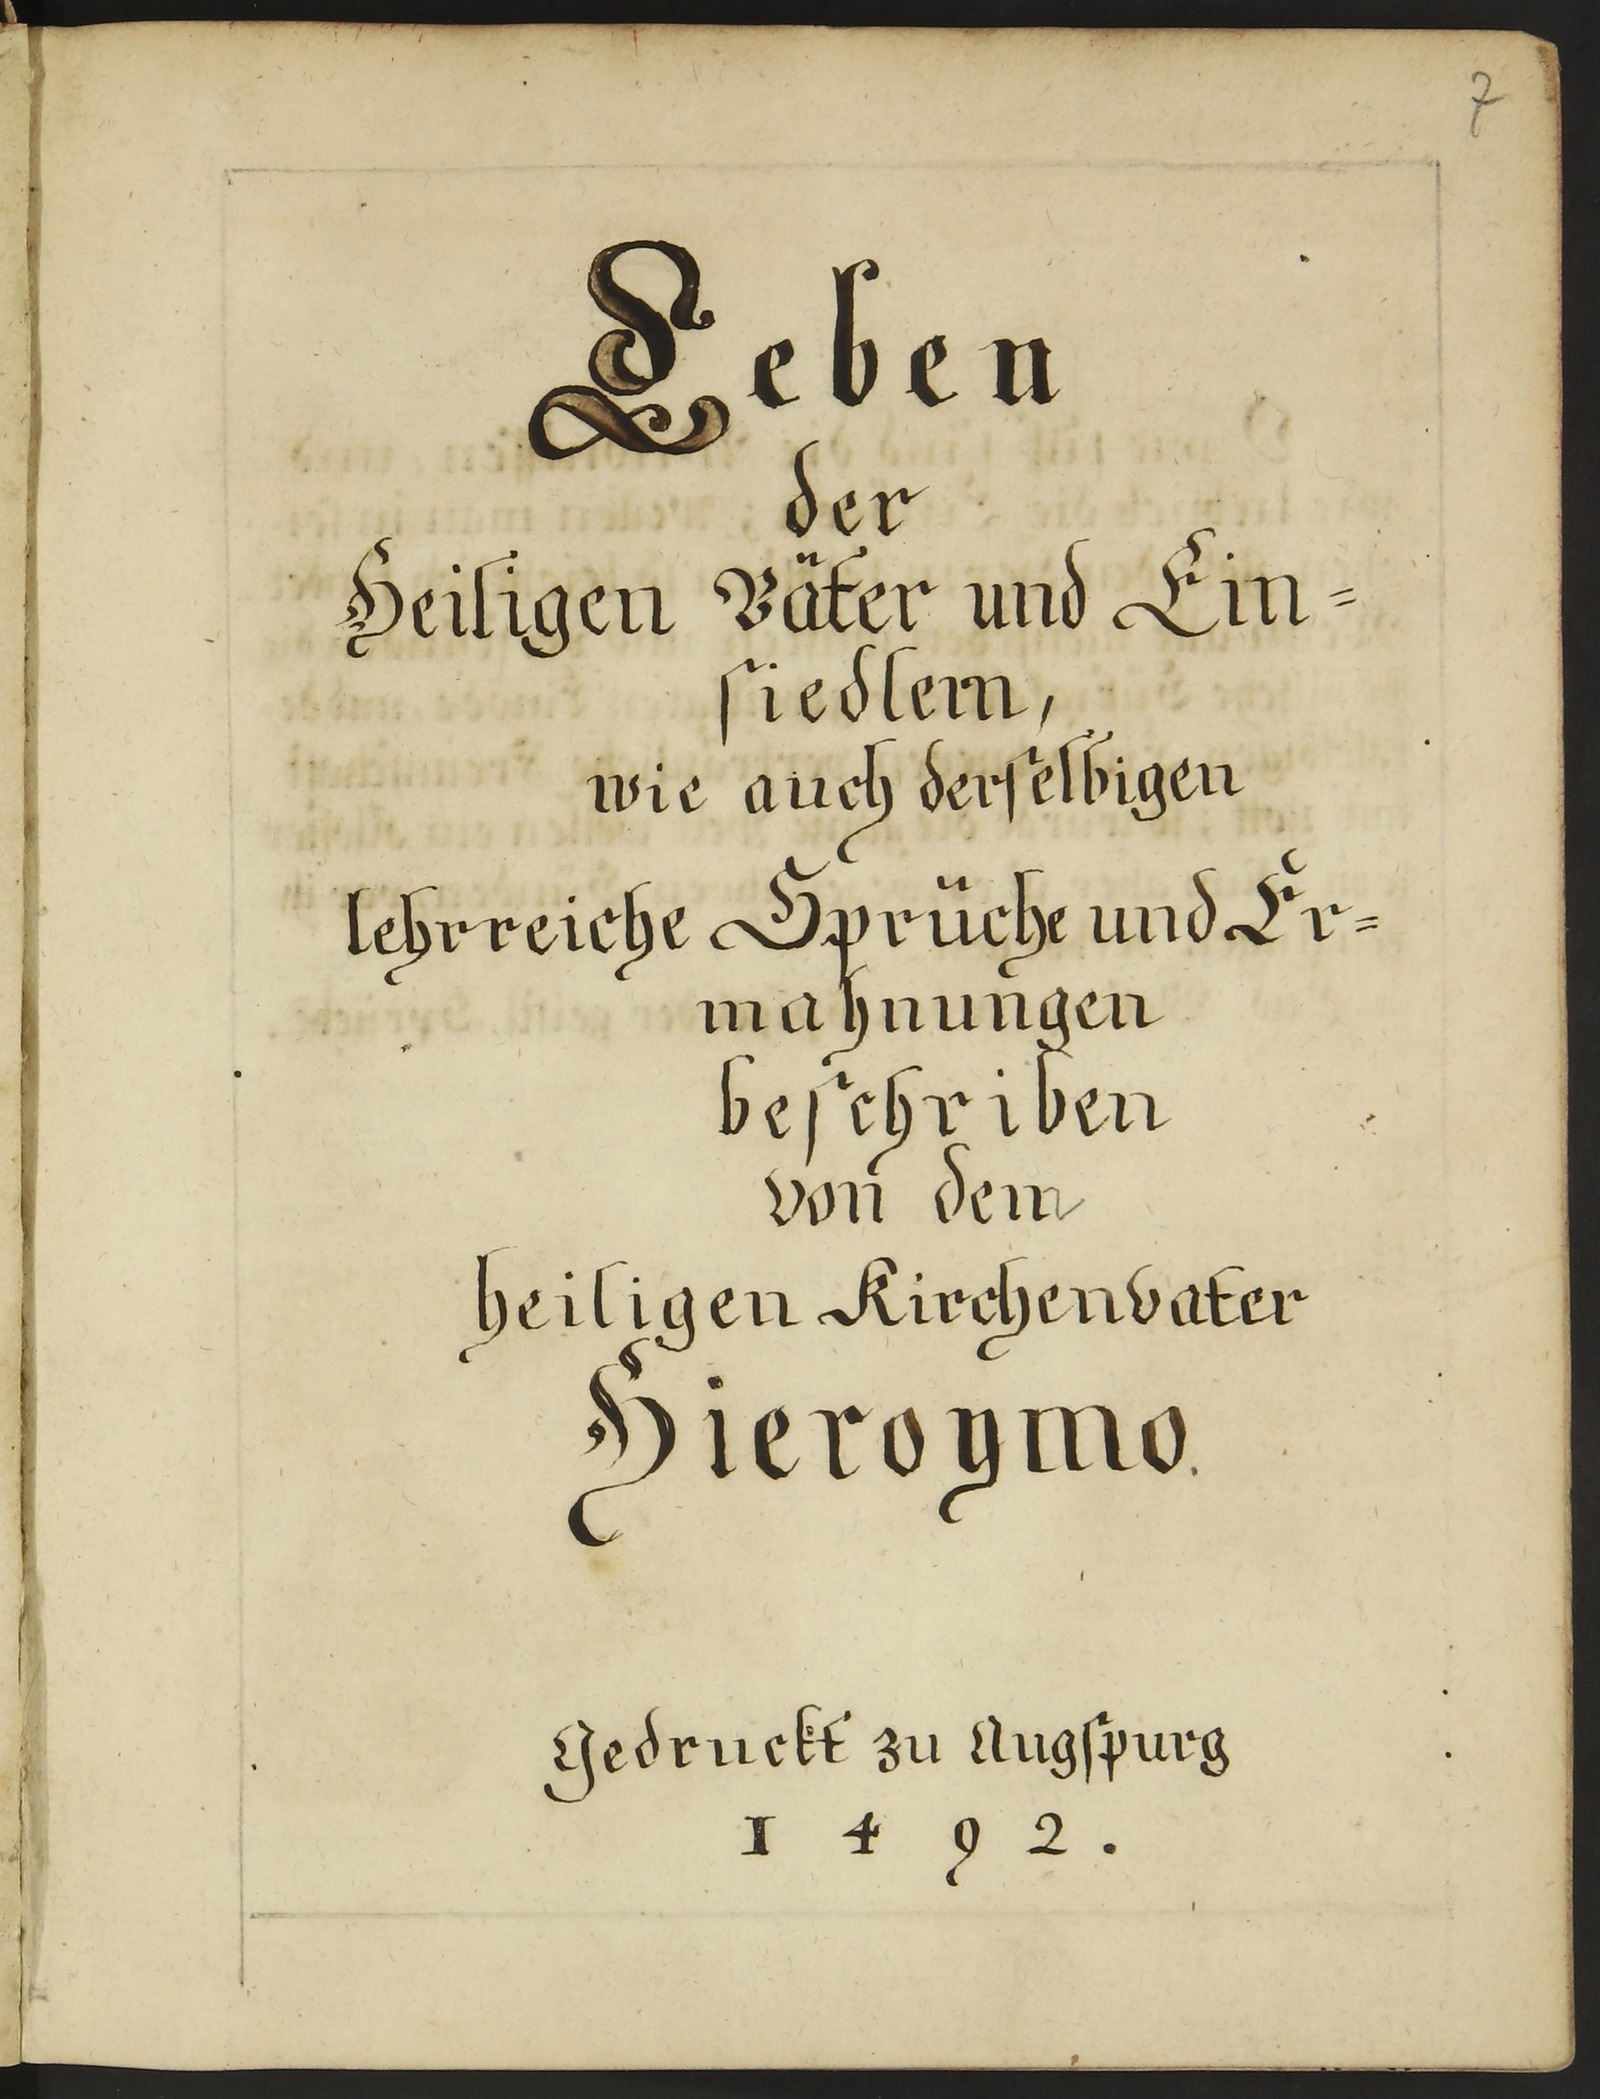 7
Leben
der
Heiligen Väter und Ein=
ſiedlern,
wie auch derſelbigen
lehrreiche Sprüche und Er=
mahnungen
beſchriben
von dem
heiligen Kirchenvater
Hieroymo.
Gedruckt zu Augſpurg
1492.